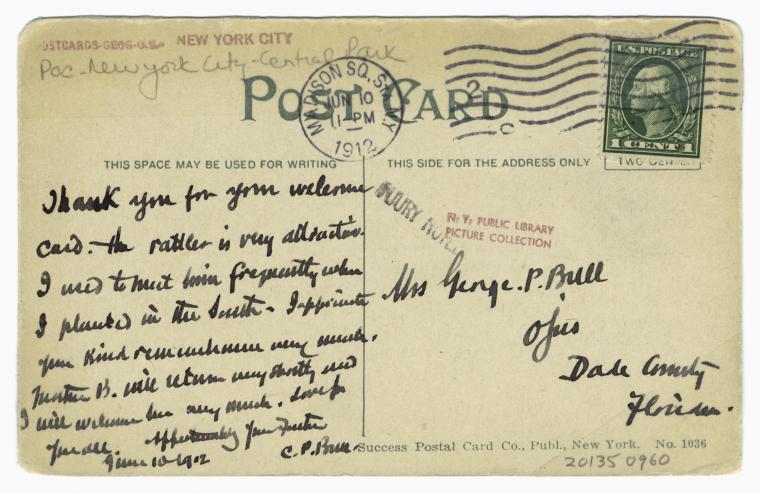 POSTCARDS-GEOG-U.S. NEW YORK CITY
Poc-New York City-Central Park
POST CARD
MADISON SQ. STA. N.Y.
JUN 10
11-PM
1912
2
C
U.S. POSTAGE
1 CENT 1
TWO CENTS
THIS SPACE MAY BE USED FOR WRITING
THIS SIDE FOR THE ADDRESS ONLY
Thank you for your welcome
card. The rattler is very attractive.
I used to meet him frequently when
I planted in the South. I appreciate
your kind remembrance very much.
Mother B. will return very shortly and
I will welcome her very much. Love for
you all. Affectionately your Father
June 10-1912 C. P. Bull
INJURY NOTED
N. Y. PUBLIC LIBRARY
PICTURE COLLECTION
Mrs George. P. Bull
Ojus
Dade County
Florida.
Success Postal Card Co., Publ., New York. No. 1036
20135 0960